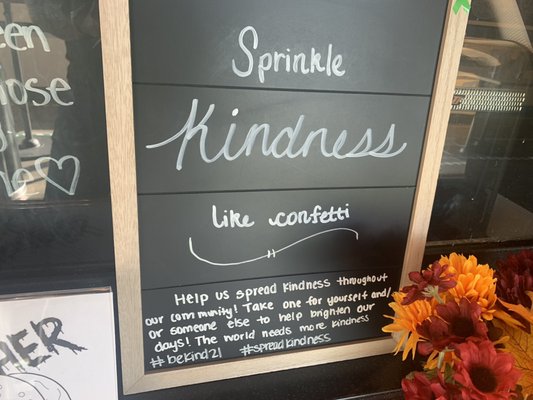 Sprinkle
Kindness
like confetti
Help us spread Kindness throughout
our community! Take one for yourself and/
or someone else to help brighten our
days! The world needs more kindness
#bekind21 #spreadkindness